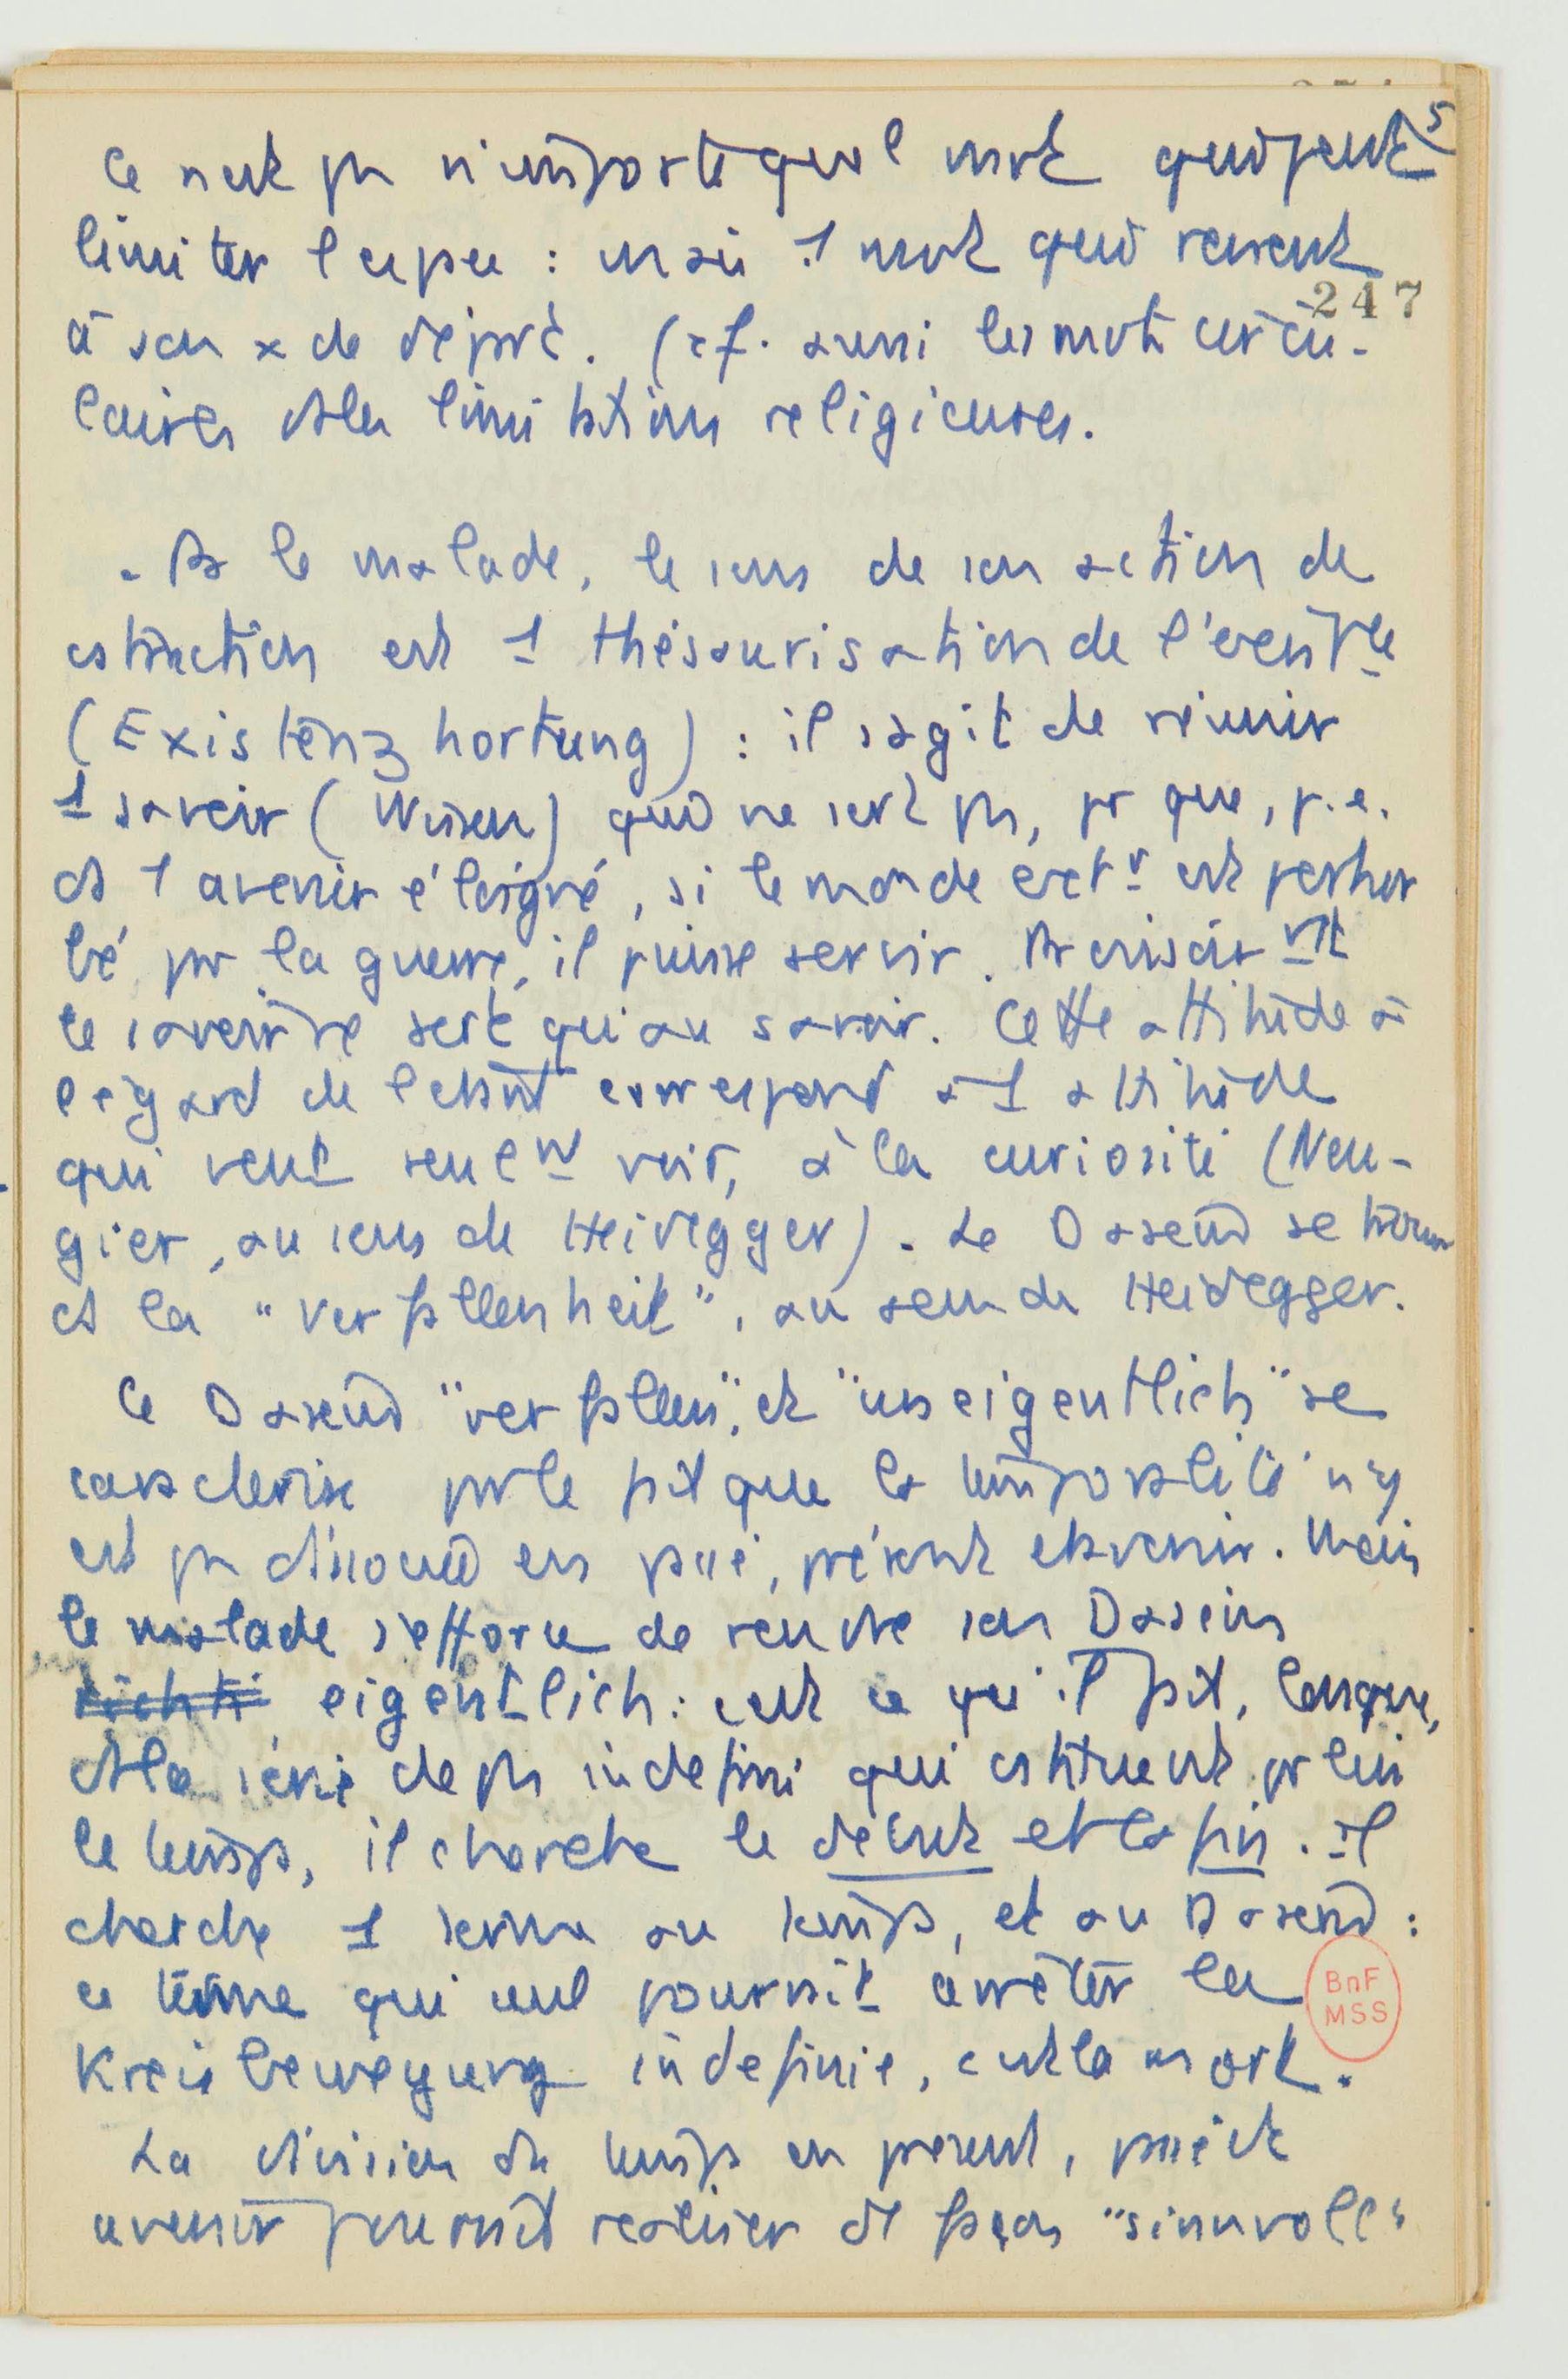 5
Ce n'est pas n'importe quel mvt qui peut
limiter l'espace : mais 1 mvt qui revient
247
à son x de départ. (cf. aussi les mvts circu-
laires ds les limitations religieuses.
- Ds le malade, le sens de son action de
est 1 thésaurisation de
(Existenzhortung) : il s'agit de réunir
1 savoir (Wissen) qui ne sert pas, pr que, p.e.
ds 1 avenir éloigné, si le monde extr est pertur
bé par la guerre, il puisse servir.
le savoir ne sert qu'au savoir. Cette attitude à
l'égard de correspond à 1 attitude
qui veut seult voir, à la curiosité (Neu-
gier, au sens de Heidegger). Le Dasein se trouve
ds la "Verfallenheit", au sens de Heidegger.
Ce Dasein "verfallen", et "uneigentlich" se
caractérise par le fait que la temporalité n'y
est pas dissoute en passé, présent et avenir. Mais
le malade s'efforce de rendre son Dasein
eigentlich : c'est ce qu'il fait, lorsque,
ds la série de pas indéfinis qui cstituent pr lui
le temps, il cherche le début et la fin. il
cherche 1 terme au temps, et au Dasein :
ce terme qui seul pourrait arrêter la
Kreisbewegung indéfinie, c'est la mort.
BnF
MSS
La division du temps en présent, passé et
avenir réaliser de façon "sinnvoll"